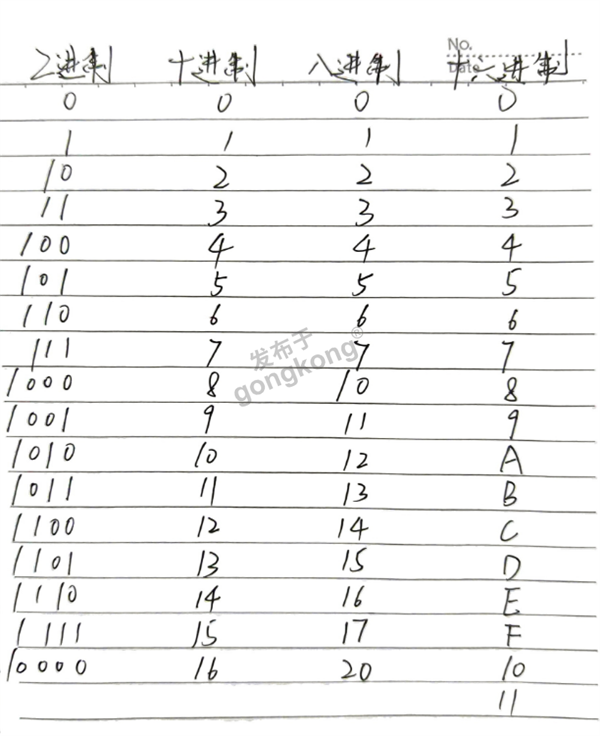 No.
Date
2进制 十进制 八进制 十六进制
0 0 0 0
1 1 1 1
10 2 2 2
11 3 3 3
100 4 4 4
101 5 5 5
110 6 6 6
111 7 7 7
发布于
gongkong®
1000 8 10 8
1001 9 11 9
1010 10 12 A
1011 11 13 B
1100 12 14 C
1101 13 15 D
1110 14 16 E
1111 15 17 F
10000 16 20 10
11